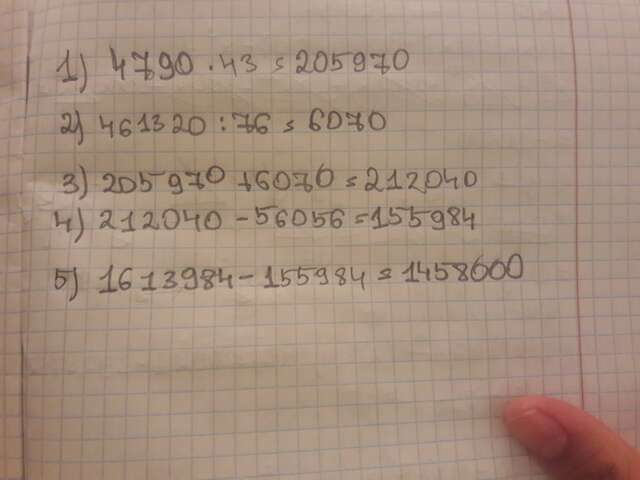 1) 4790 · 43 = 205970
2) 461320 : 76 = 6070
3) 205970 + 6070 = 212040
4) 212040 - 56056 = 155984
5) 1613984 - 155984 = 1458600